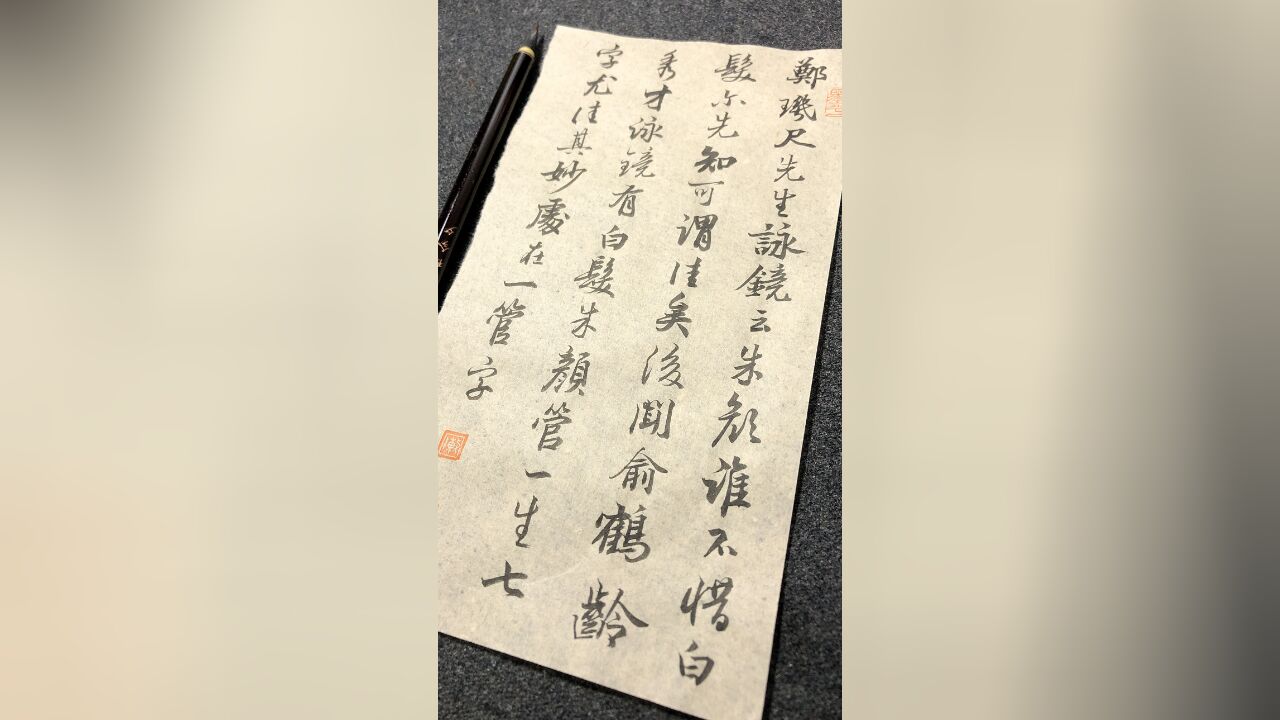 鄭璣尺先生詠鏡云朱顏誰不惜白
髮尔先知可謂佳矣後聞俞鶴齡
秀才詠鏡有白髮朱顏管一生七
字尤佳其妙處在一管字